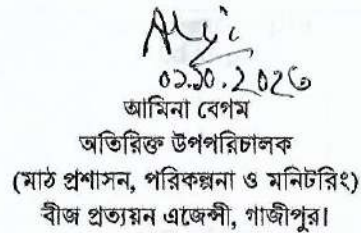 আমিনা বেগম
অতিরিক্ত উপপরিচালক
(মাঠ প্রশাসন, পরিকল্পনা ও মনিটরিং)
বীজ প্রত্যয়ন এজেন্সী, গাজীপুর।